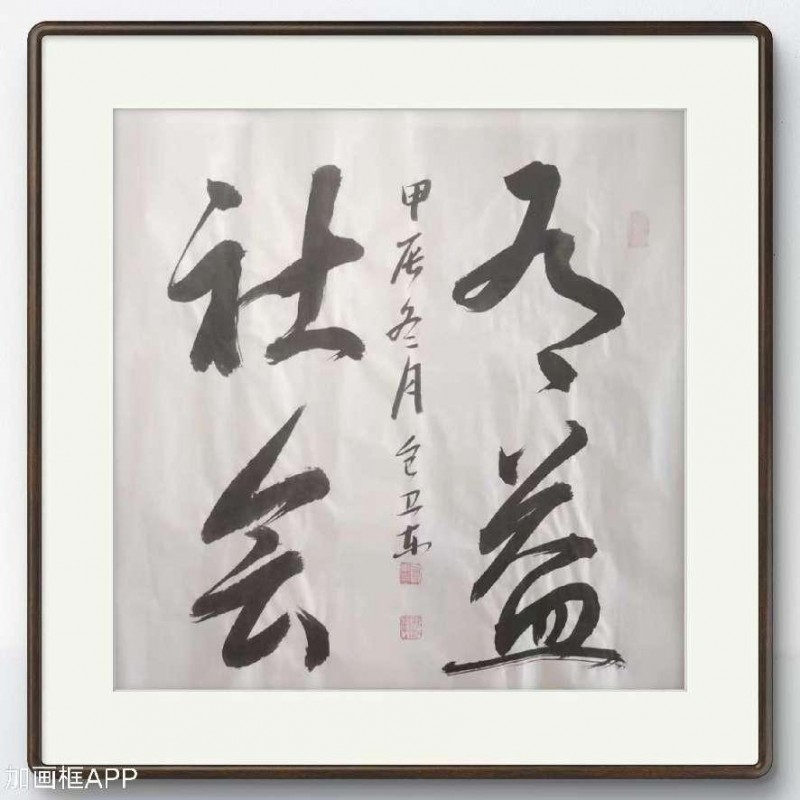 有益
社会
甲辰冬月仝卫东
加画框APP